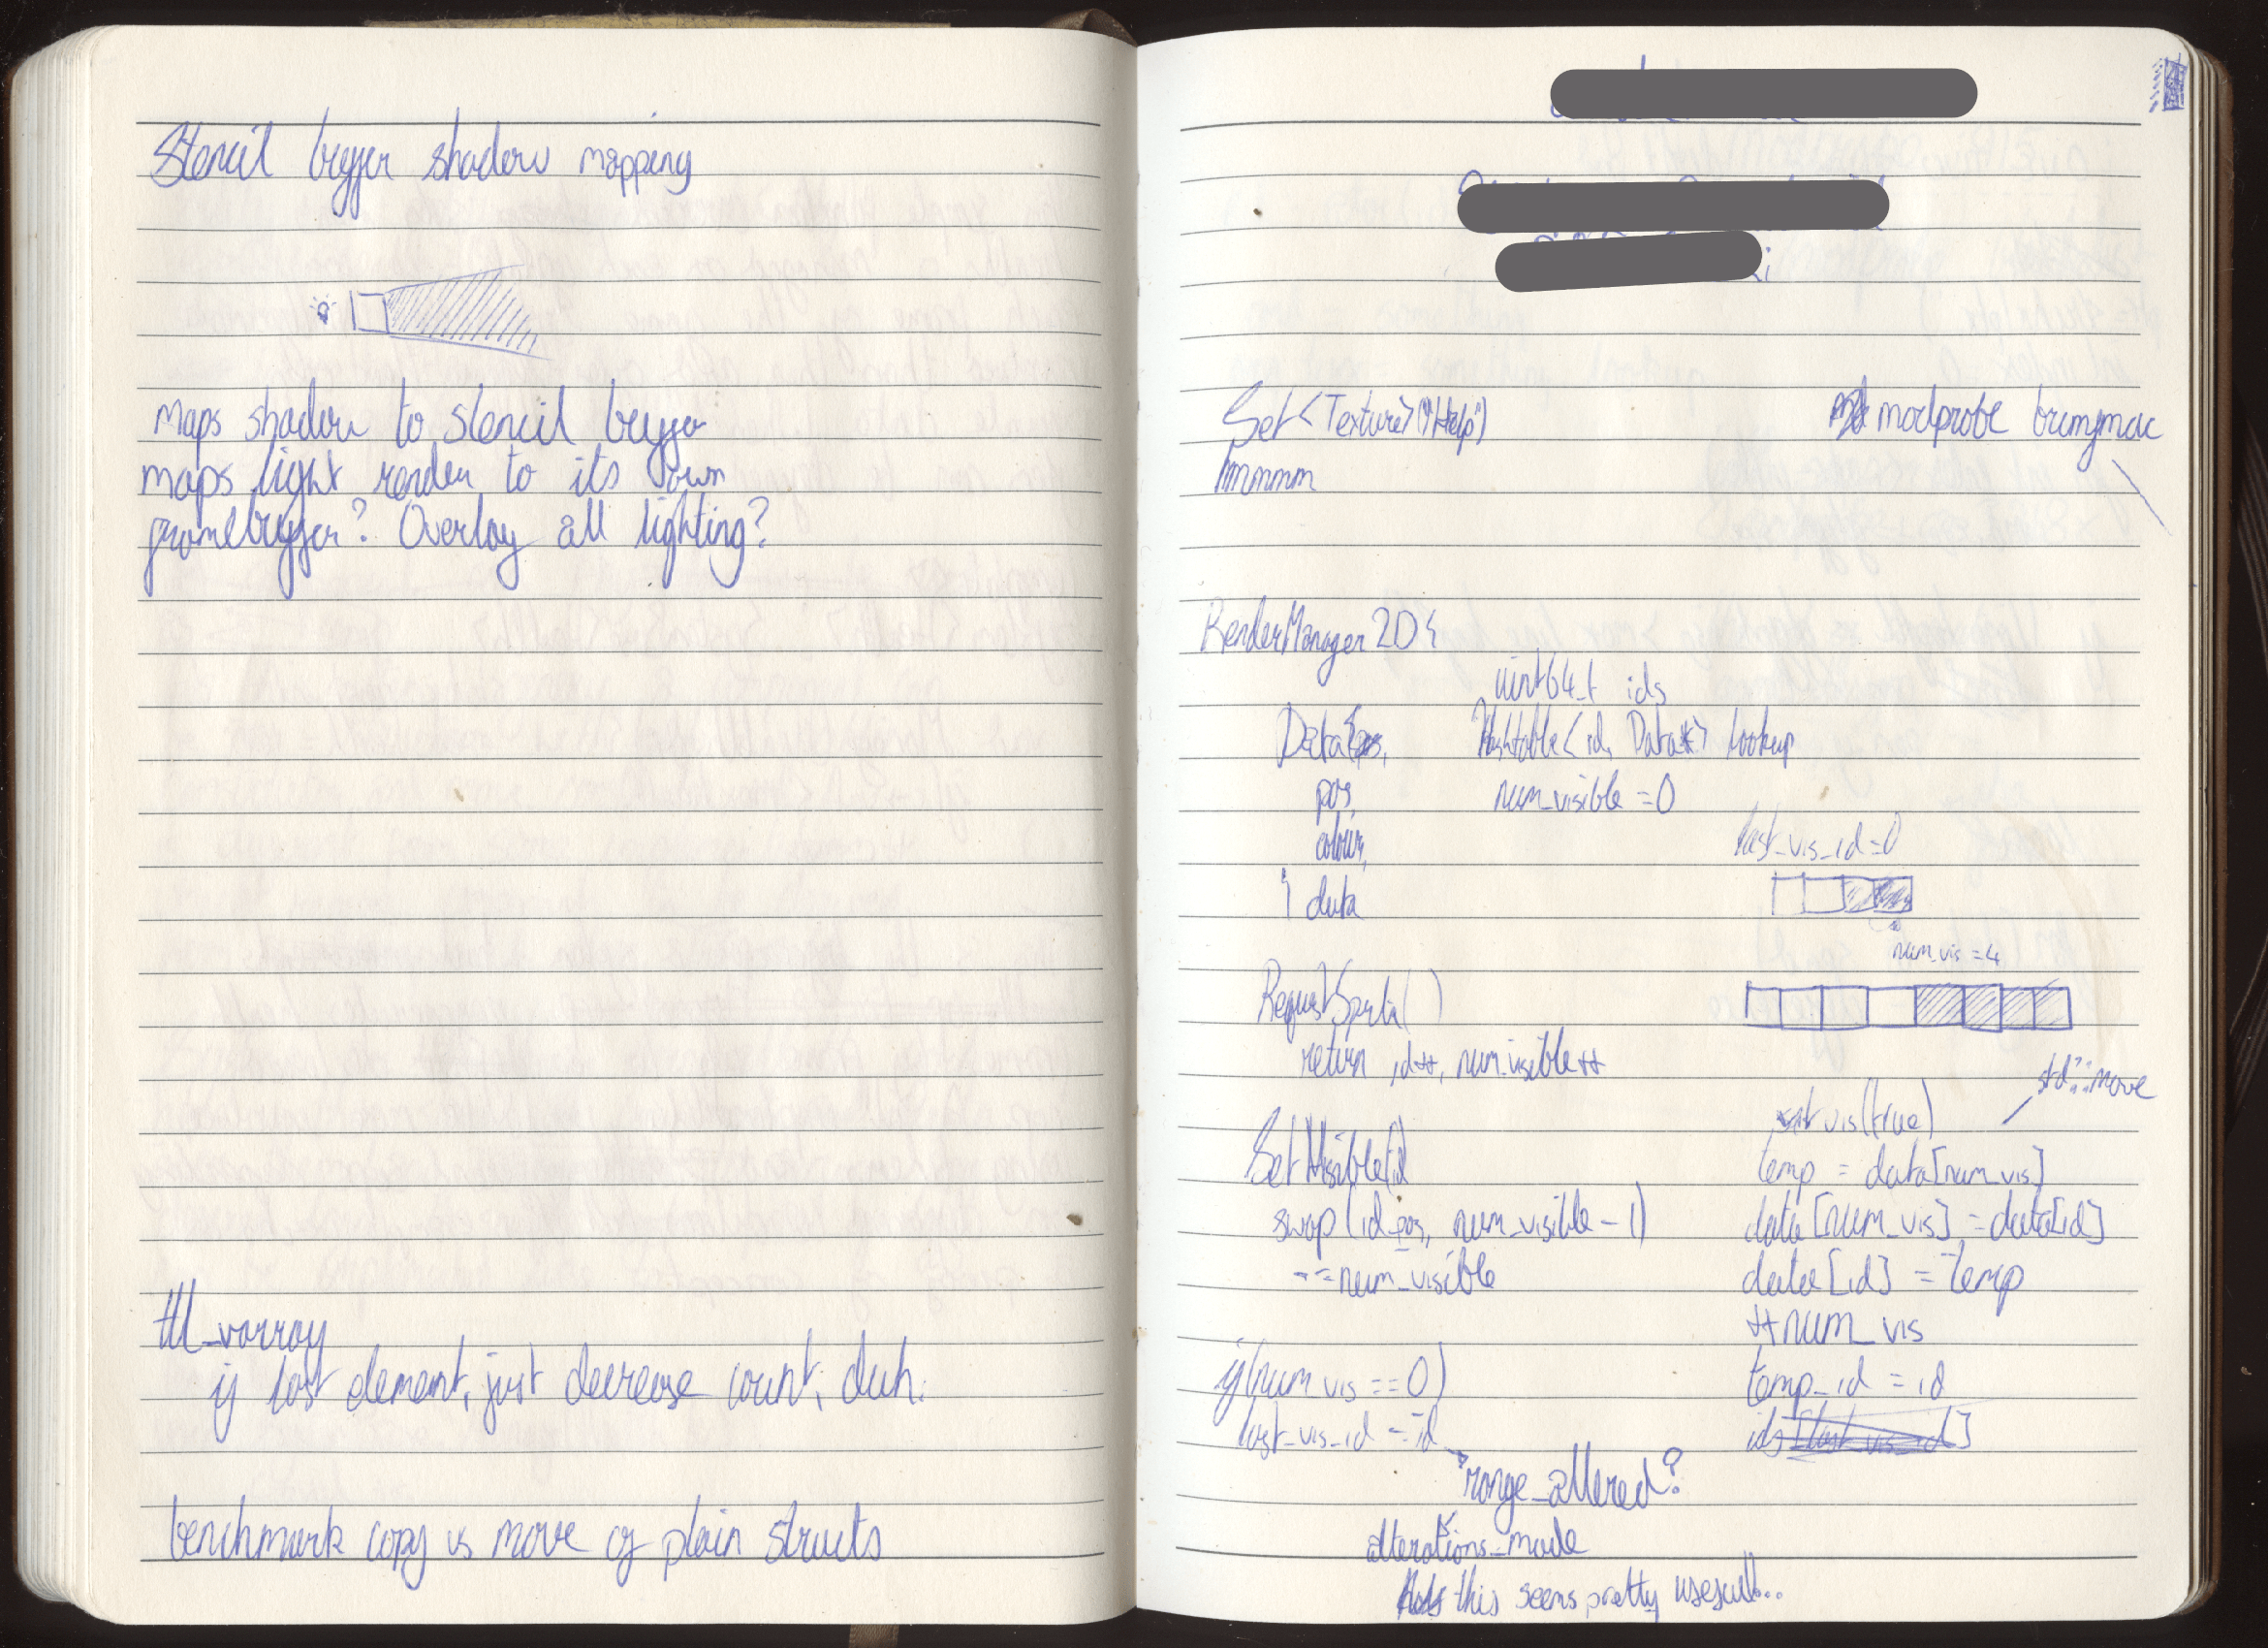 Stencil buffer shadow mapping
Maps shadow to stencil buffer
maps light render to its own
framebuffer? Overlay all lighting?
ttl_varray
if last element, just decrease count, duh.
benchmark copy vs move of plain structs
Set<Texture>("Help")
hmmmm
modprobe
RenderManager2D{
uint64_t ids
Data{
Hashtable<id, Data*> lookup
pos,
num_visible = 0
colour,
last_vis_id=0
} data
num_vis = 4
RequestSprite()
return id++, num_visible++
std::move
set vis(true)
SetVisible(id
temp = data[num_vis]
swap(id_pos, num_visible - 1)
data[num_vis] = data[id]
--num_visible
data[id] = temp
++num_vis
if(num_vis == 0)
temp_id = id
last_vis_id = id
ids[last_vis_id]
range_altered?
alterations_made
this seems pretty useful...